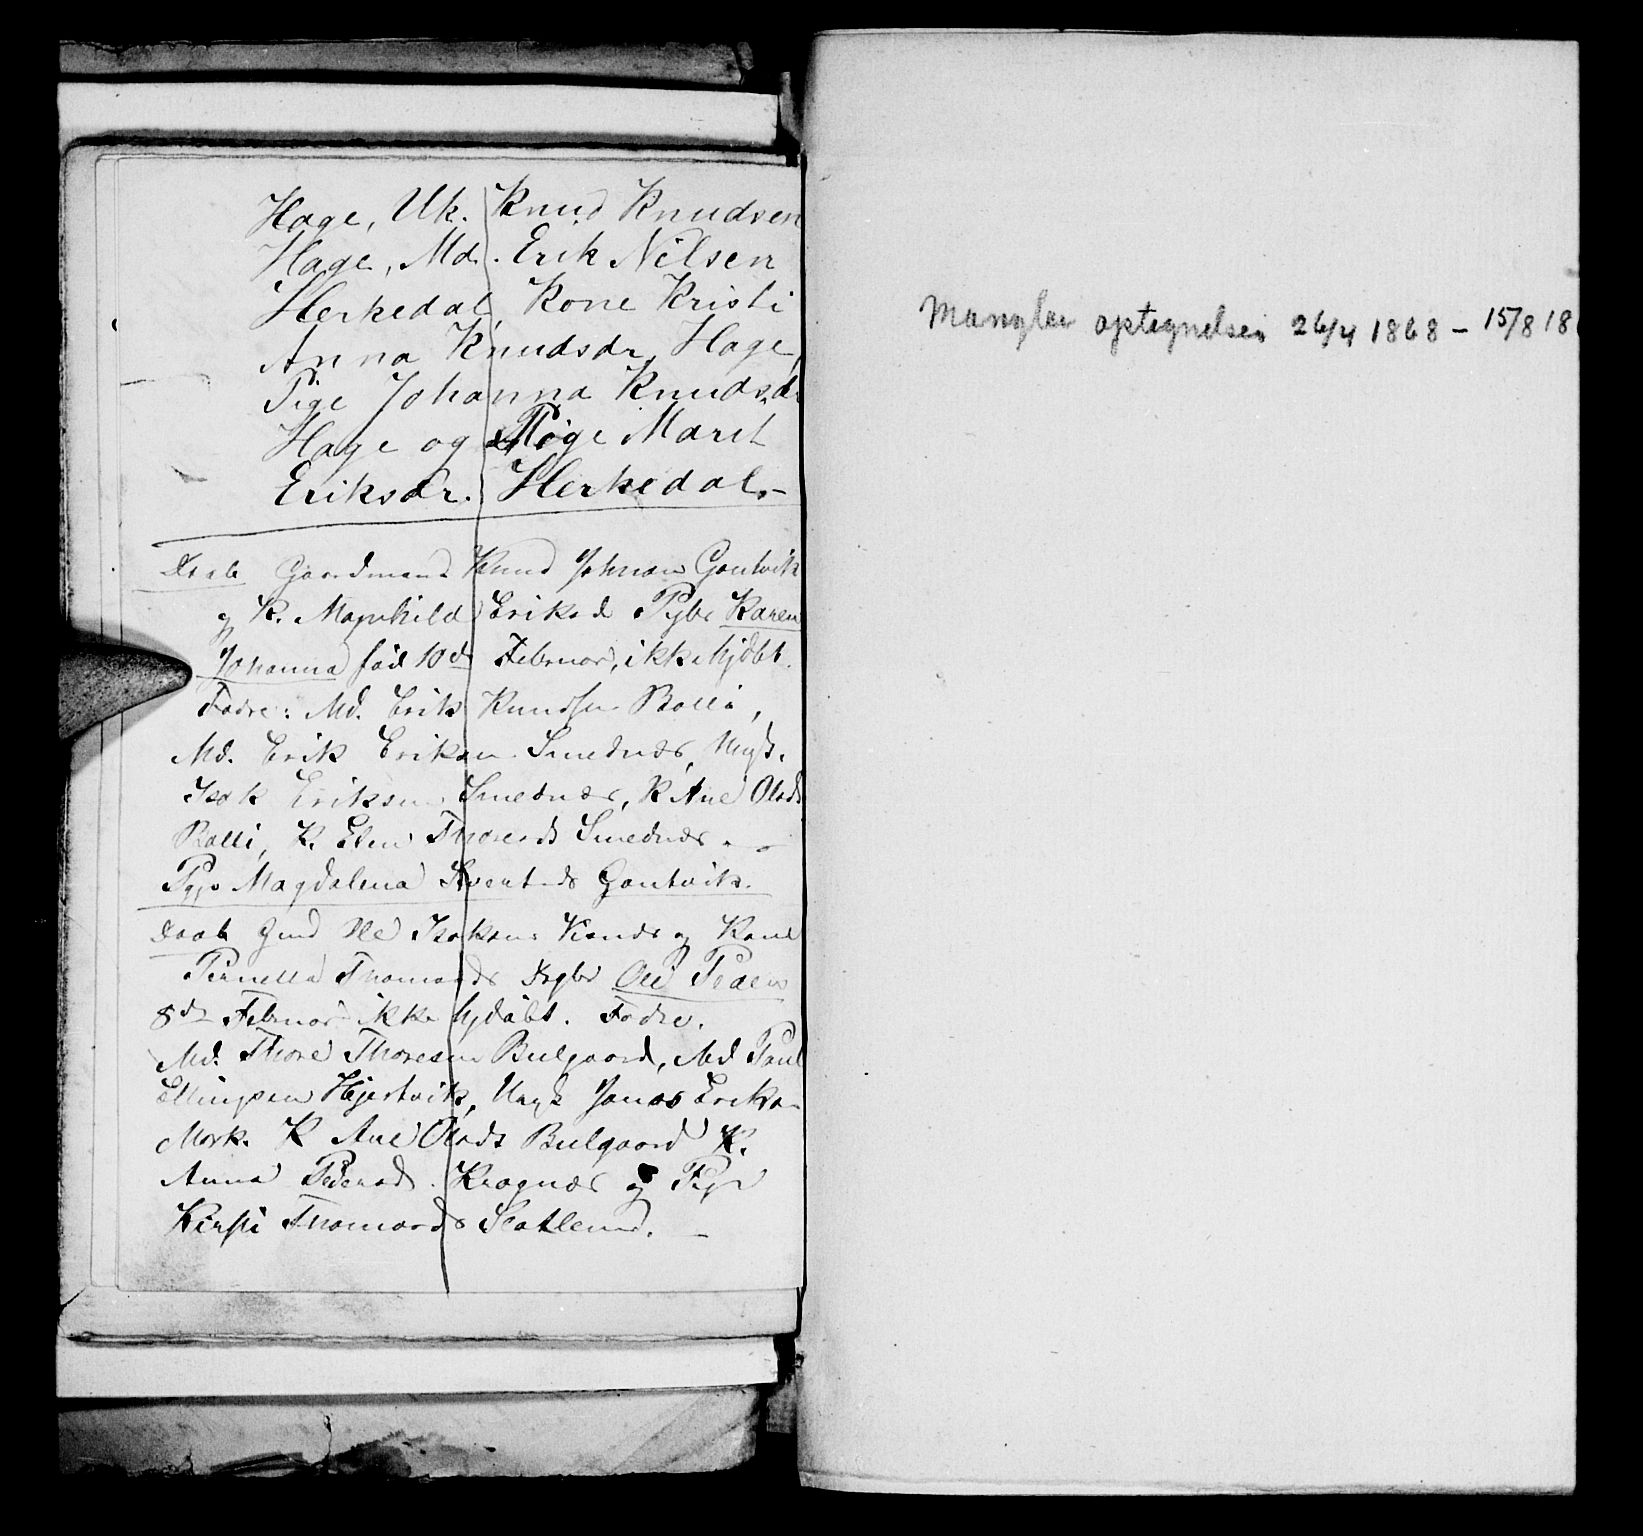 Hage, Uk. Knud Knudsen
Hage, Md. Erik Nilsen
Herkedal, Kone Kristi
Anna Knudsdr, Hage,
Pige Johanna Knudsdr
Hage og Pige Marit
Eriksdr. Herkedal. –
Daab Gaardmand Knud Johnsen Gautvik
og K. Magnhild Eriksd Pgbr Karen
Johanna föd 10de Februar, ikke hjdbt.
Fadre: Md. Erik Knudsen Bolli,
Md. Erik Eriksen Smednæs, Ungk.
Isak Eriksen Smednæs, K Ane Olads
Bolli, K. Elen Thoreds Smednæs
Pige Magdalena Siverts Gautvik.
Daab Gmd Ole Isaksen og Kone
Pernella Thomasds Ole Peder
8de Februar ikke hjdöbt. Fadre.
Md. Thore Thoresen BuLgaard, Md Paul
Ellingsen Hjertvik, Ungk Jonas Eriksen
Mork. K Ane Olads Bulgaard K.
Anna Pedersd. Kragnæs og Pige
Kirsti Thomasds
Mangler optegnelser 26/4 1868 – 15/8 18